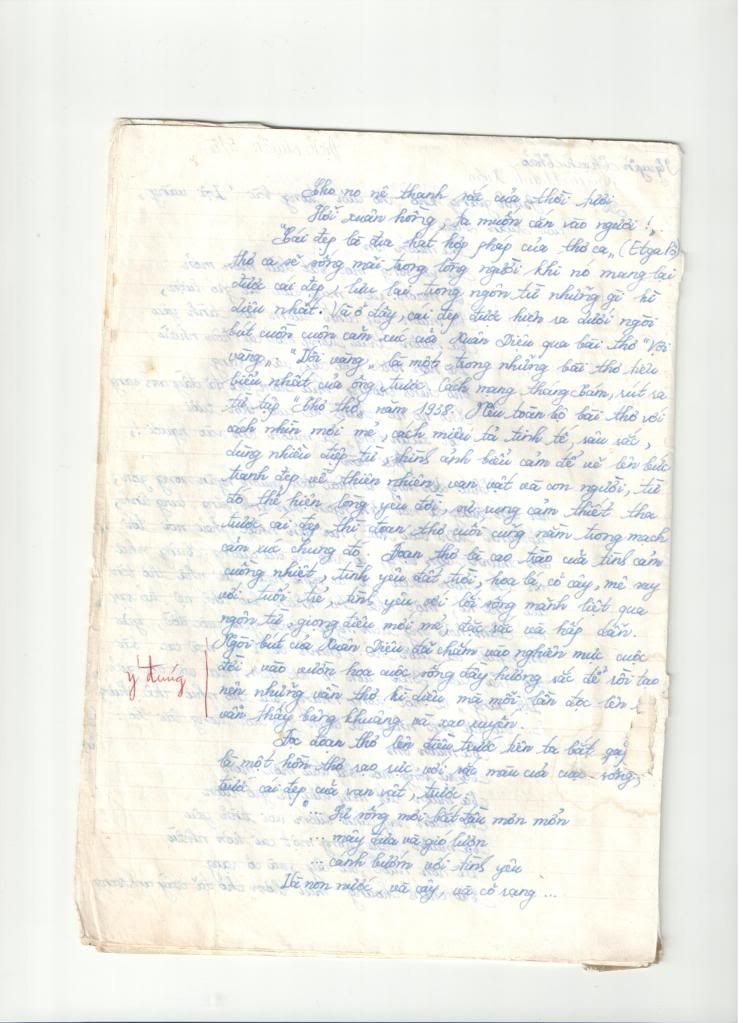 Cho no nê thanh sắc của thời tươi
Hỡi xuân hồng, ta muốn cắn vào ngươi!"
"Cái đẹp là địa hạt hợp pháp của thơ ca" (Etga Pô)
thơ ca sẽ sống mãi trong lòng người khi nó mang lại
được cái đẹp, lưu lại trong ngôn từ những gì kì
diệu nhất. Và ở đây, cái đẹp được hiện ra dưới ngòi
bút cuồn cuộn cảm xúc của Xuân Diệu qua bài thơ "Vội
vàng". "Vội vàng" là một trong những bài thơ tiêu
biểu nhất của ông trước Cách mạng tháng Tám, rút ra
từ tập "Thơ thơ" năm 1938. Nếu toàn bộ bài thơ với
cách nhìn mới mẻ, cách miêu tả tinh tế, sâu sắc,
dùng nhiều điệp từ, hình ảnh biểu cảm để vẽ lên bức
tranh đẹp về thiên nhiên, vạn vật và con người, từ
đó thể hiện lòng yêu đời, sự rung cảm thiết tha
trước cái đẹp thì đoạn thơ cuối cũng nằm trong mạch
cảm xúc chung đó. Đoạn thơ là cao trào của tình cảm
cuồng nhiệt, tình yêu đất trời, hoa lá, cỏ cây, mê say
với tuổi trẻ, tình yêu với lối sống mãnh liệt qua
ngôn từ, giọng điệu mới mẻ, đặc sắc và hấp dẫn.
Ngòi bút của Xuân Diệu đã chấm vào nghiên mực cuộc
đời, vào vườn hoa cuộc sống đầy hương sắc để rồi tạo
nên những vần thơ kì diệu mà mỗi lần đọc lên
vẫn thấy bâng khuâng và xao xuyến.
ý đúng
Đọc đoạn thơ lên điều trước tiên ta bắt gặp
là một hồn thơ rạo rực với sắc màu của cuộc sống,
trước cái đẹp của vạn vật, trước
"... Sự sống mới bắt đầu mơn mởn
... mây đưa và gió lượn
... cánh bướm với tình yêu
Và non nước, và cây, và cỏ rạng ...